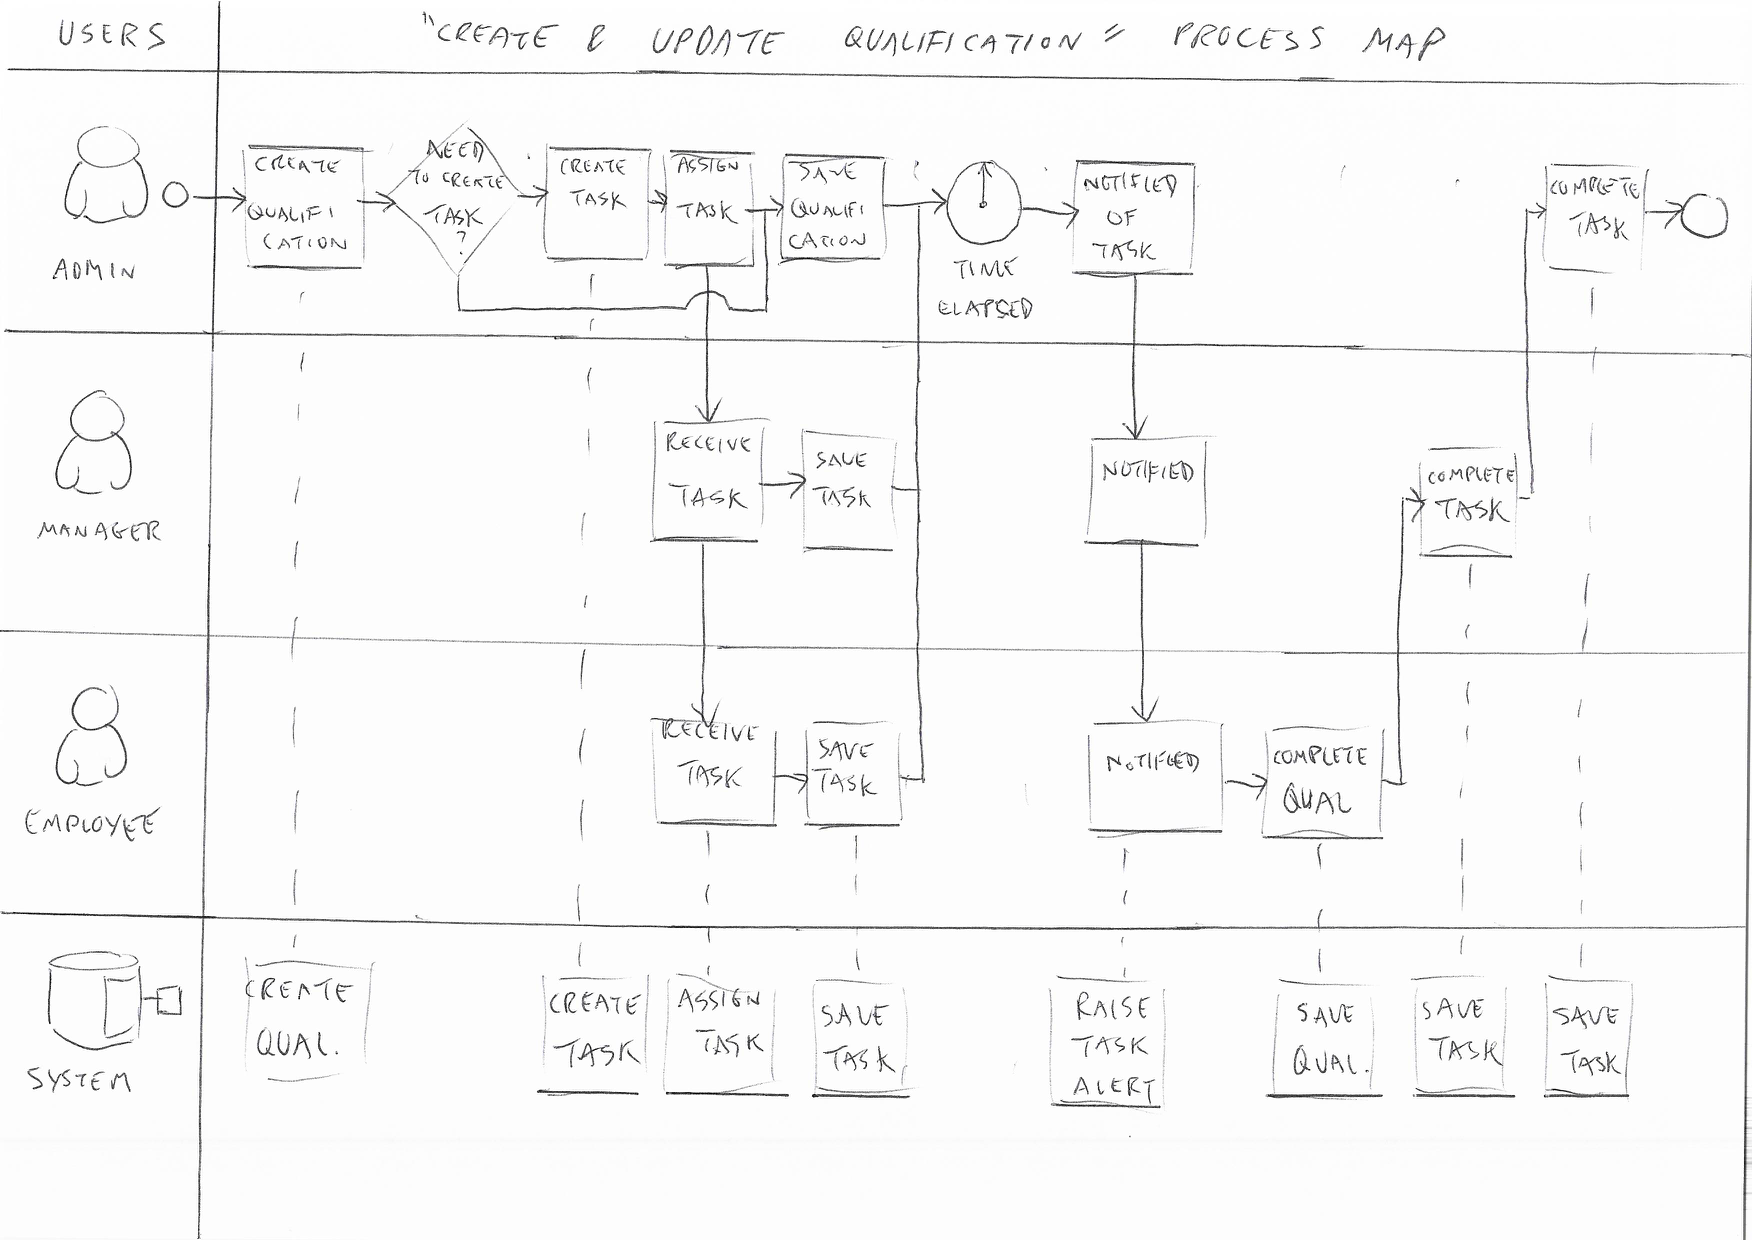 USERS
"CREATE & UPDATE QUALIFICATION" PROCESS MAP
CREATE
QUALIFI
CATION
NEED
TO CREATE
TASK
?
CREATE
TASK
ASSIGN
TASK
SAVE
QUALIFI
CATION
TIME
ELAPSED
NOTIFIED
OF
TASK
COMPLETE
TASK
ADMIN
RECEIVE
TASK
SAVE
TASK
NOTIFIED
COMPLETE
TASK
MANAGER
RECEIVE
TASK
SAVE
TASK
NOTIFIED
COMPLETE
QUAL
EMPLOYEE
CREATE
QUAL.
CREATE
TASK
ASSIGN
TASK
SAVE
TASK
RAISE
TASK
ALERT
SAVE
QUAL.
SAVE
TASK
SAVE
TASK
SYSTEM